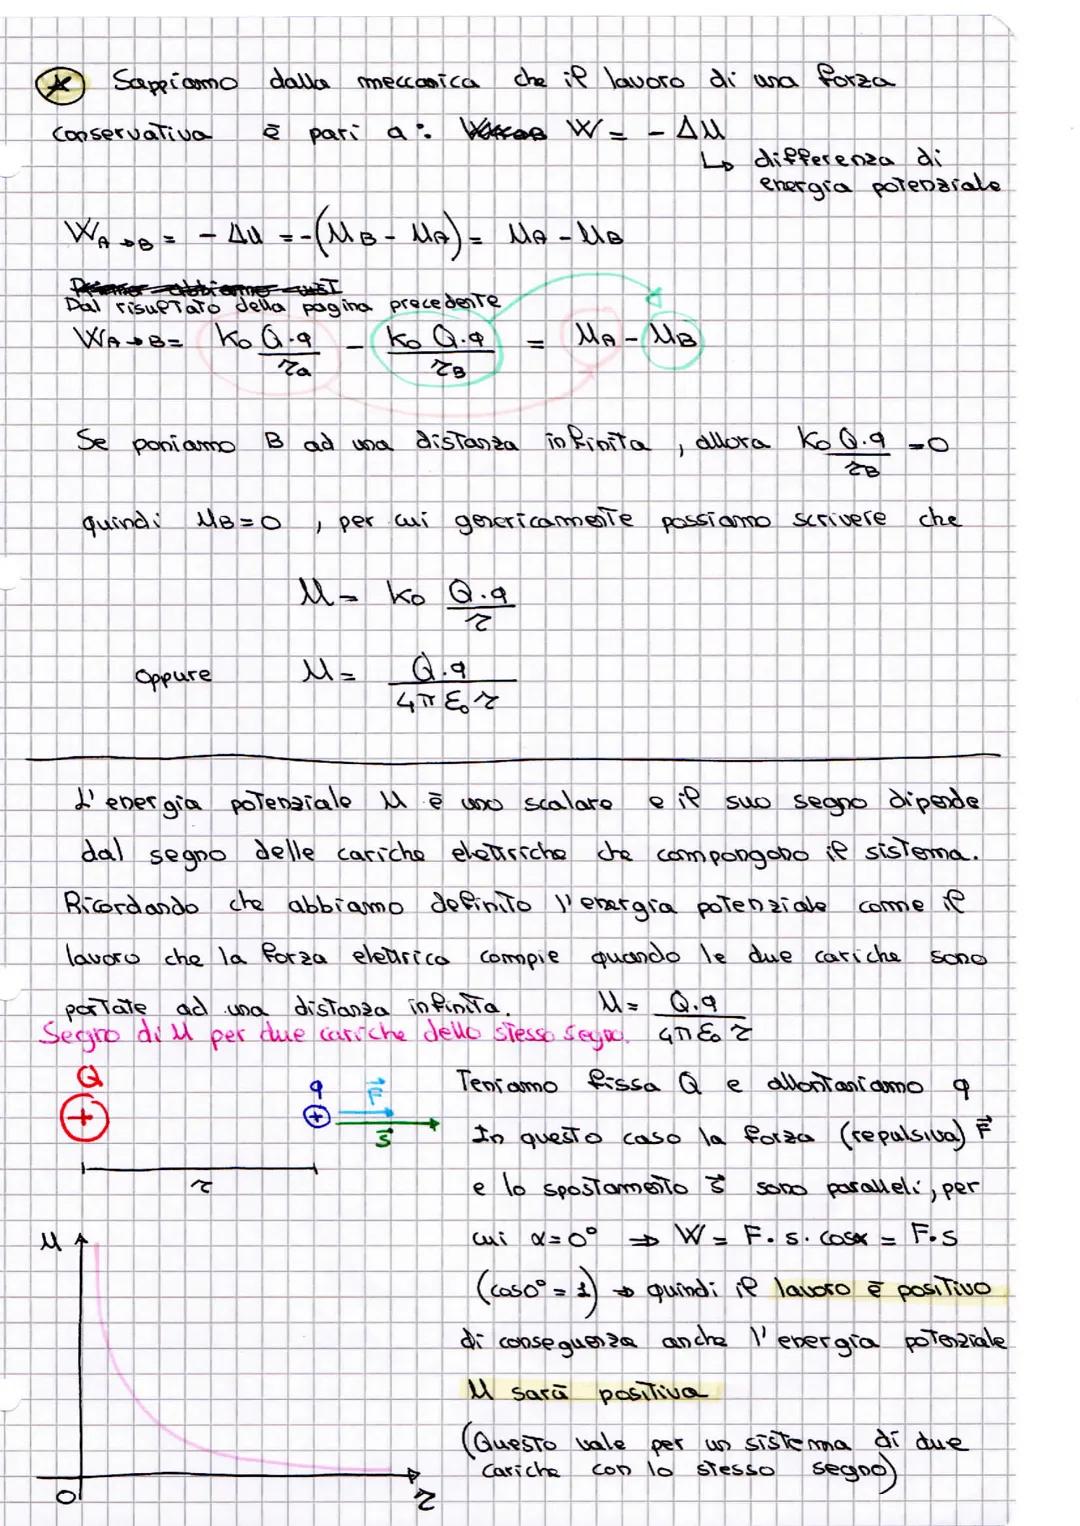 * Sappiamo dalla meccanica che il lavoro di una forza
conservativa è pari a: W = - ΔU
↳ differenza di
energia potenziale
W_A→B = - ΔU = -(U_B - U_A) = U_A - U_B
Dal risultato della pagina precedente
W_A→B = K₀ Q·q / r_a - K₀ Q·q / r_B = U_A - U_B
Se poniamo B ad una distanza infinita, allora K₀ Q·q / r_B = 0
quindi U_B = 0, per cui genericamente possiamo scrivere che
U = K₀ Q·q / r
oppure U = Q·q / 4πε₀ r
L'energia potenziale U è uno scalare e il suo segno dipende
dal segno delle cariche elettriche che compongono il sistema.
Ricordando che abbiamo definito l'energia potenziale come il
lavoro che la forza elettrica compie quando le due cariche sono
portate ad una distanza infinita. U = Q·q / 4πε₀ r
Segno di U per due cariche dello stesso segno.
Q
+
q
+
F⃗
s⃗
r
Teniamo fissa Q e allontaniamo q
In questo caso la forza (repulsiva) F⃗
e lo spostamento s⃗ sono paralleli, per
cui α = 0° ⇒ W = F·s·cosα = F·s
(cos0° = 1) → quindi il lavoro è positivo
di conseguenza anche l'energia potenziale
U sarà positiva
(Questo vale per un sistema di due
cariche con lo stesso segno)
U
0
r